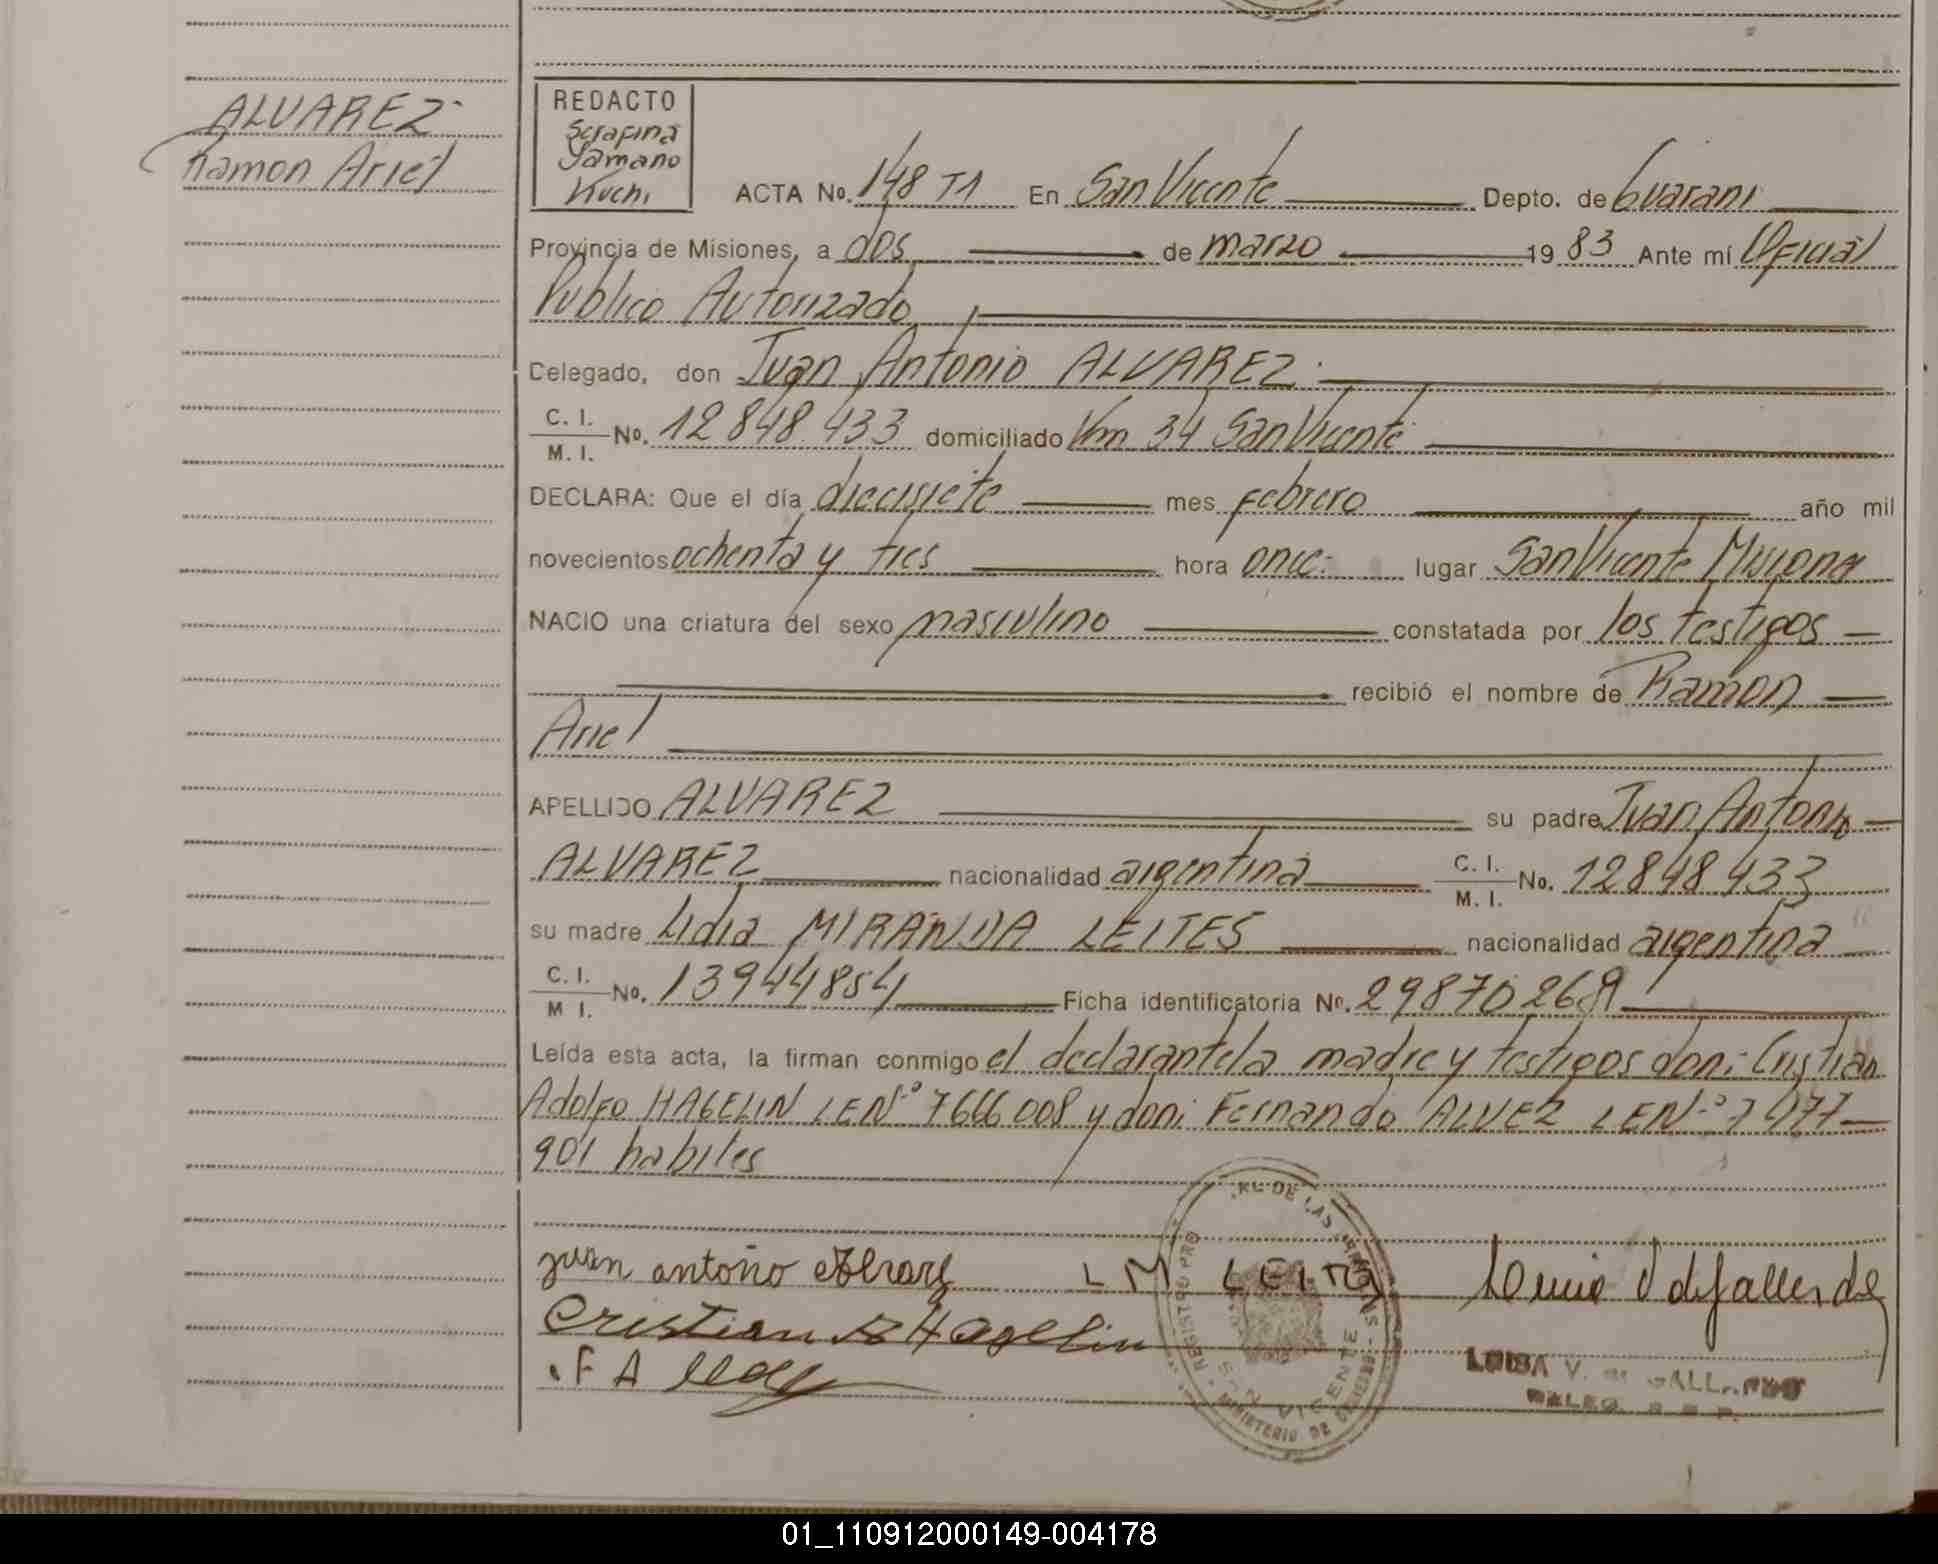 ALVAREZ
Ramon Ariel
REDACTO
Serafina
Yamano
Kuchi
ACTA No. 148 T1 En San Vicente Depto. de Guarani
Provincia de Misiones, a dos de marzo 1983 Ante mí Oficial
Publico Autorizado
Delegado, don Juan Antonio ALVAREZ
C. I.
M. I. No. 12848433 domiciliado Km 34 San Vicente
DECLARA: Que el día diecisiete mes febrero año mil
novecientos ochenta y tres hora once lugar San Vicente Misiones
NACIO una criatura del sexo masculino constatada por los testigos
recibió el nombre de Ramon
Ariel
APELLIDO ALVAREZ su padre Juan Antonio
ALVAREZ nacionalidad argentina C. I. M. I. No. 12848433
su madre Lidia MIRANDA LEITES nacionalidad argentina
C. I.
M I. No. 13944854 Ficha identificatoria No. 29870269
Leída esta acta, la firman conmigo el declarante la madre y testigos don: Cristian
Adolfo HAGELIN LE Nº 7666008 y don: Fernando ALVEZ LE Nº 7477
901 habiles
juan antoño
L M LEITES
Cristian A Hagelin
F A
REGISTRO PRO AL DE LAS PERSONAS
SAN VICENTE
MINISTERIO DE GOBIERNO
LUISA V. DE GALLARDO
01_110912000149-004178